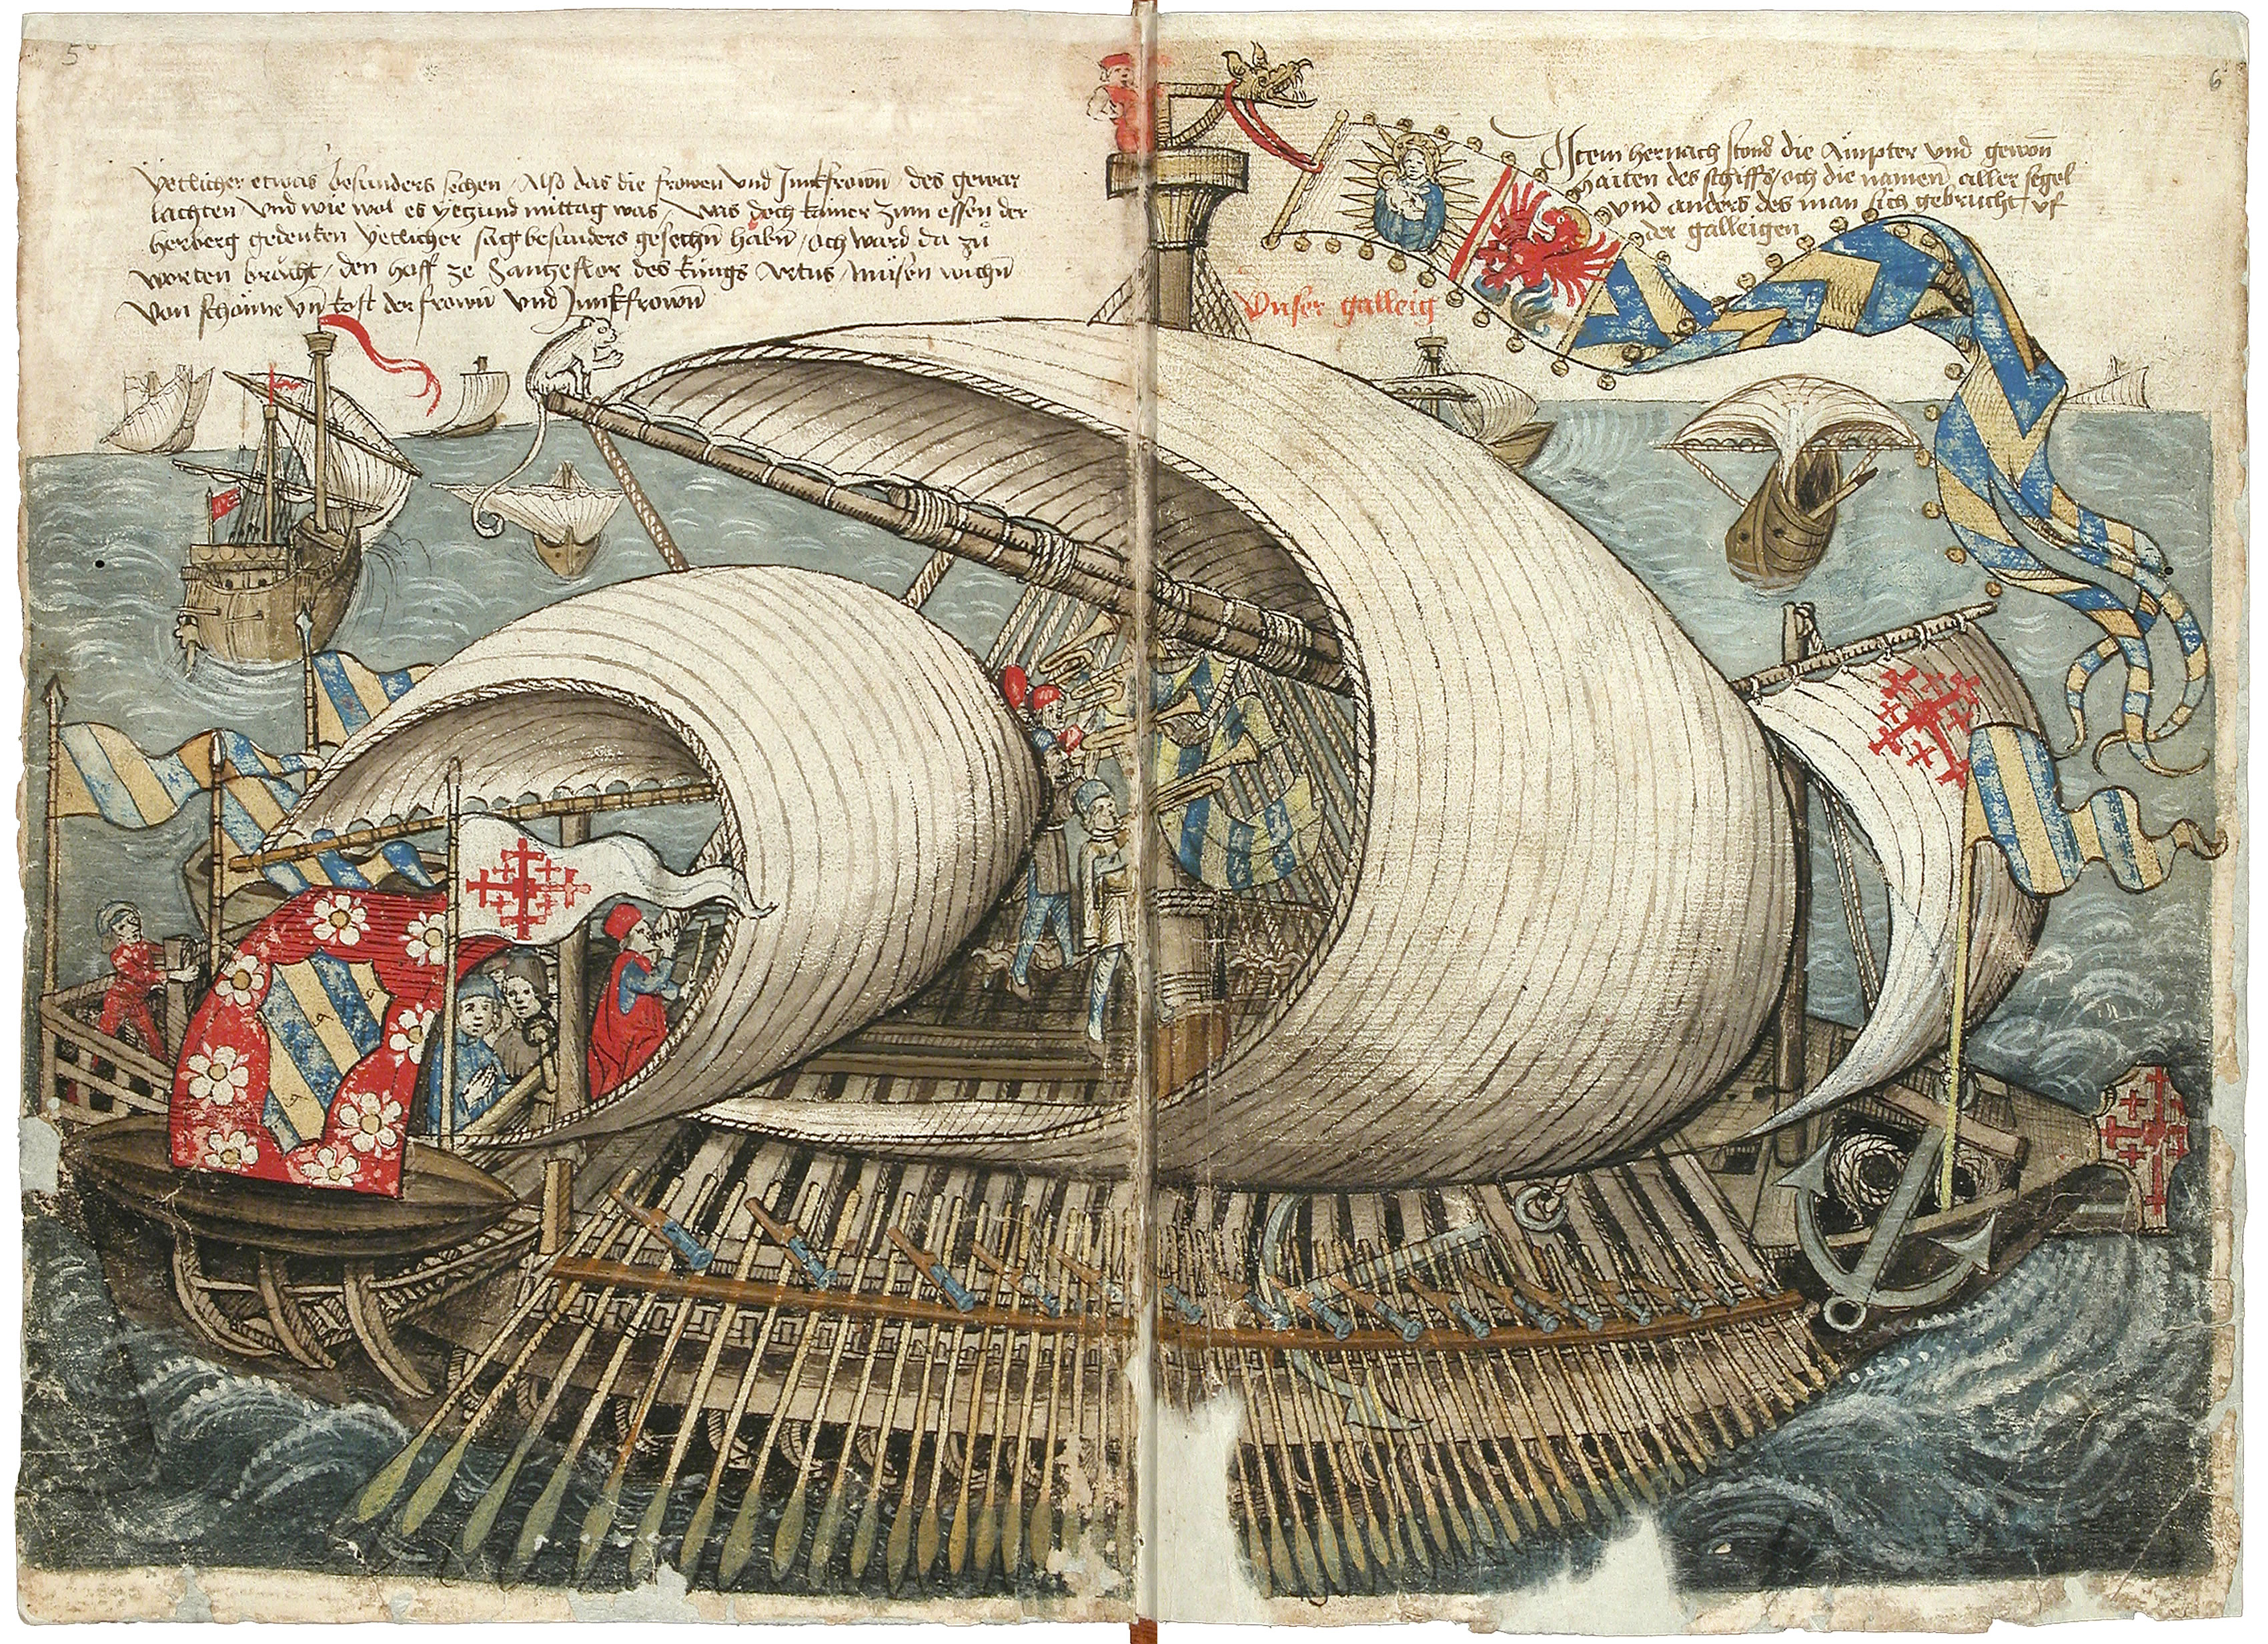 5
yetlicher etwas besunders sechen / Also das die frowen vnd Junkfrowñ / des gewar
lachten / vnd wie wol es yetzund mittag was / was doch kainer zum essen der
herberg gedenken yetlicher sagt besunders gesechñ habñ / och ward da zů
worten brăcht / den hoff ze des küngs Artus / můsen wichñ
von schönne vñ kost der frowñ vnd Junkfrowñ
6
Item hernach stond die Ämpter vnd gewon
haiten des schiffs / och die namen aller segel
vnd anders des man sich gebrucht vf
der galleigen
Vnser galleig